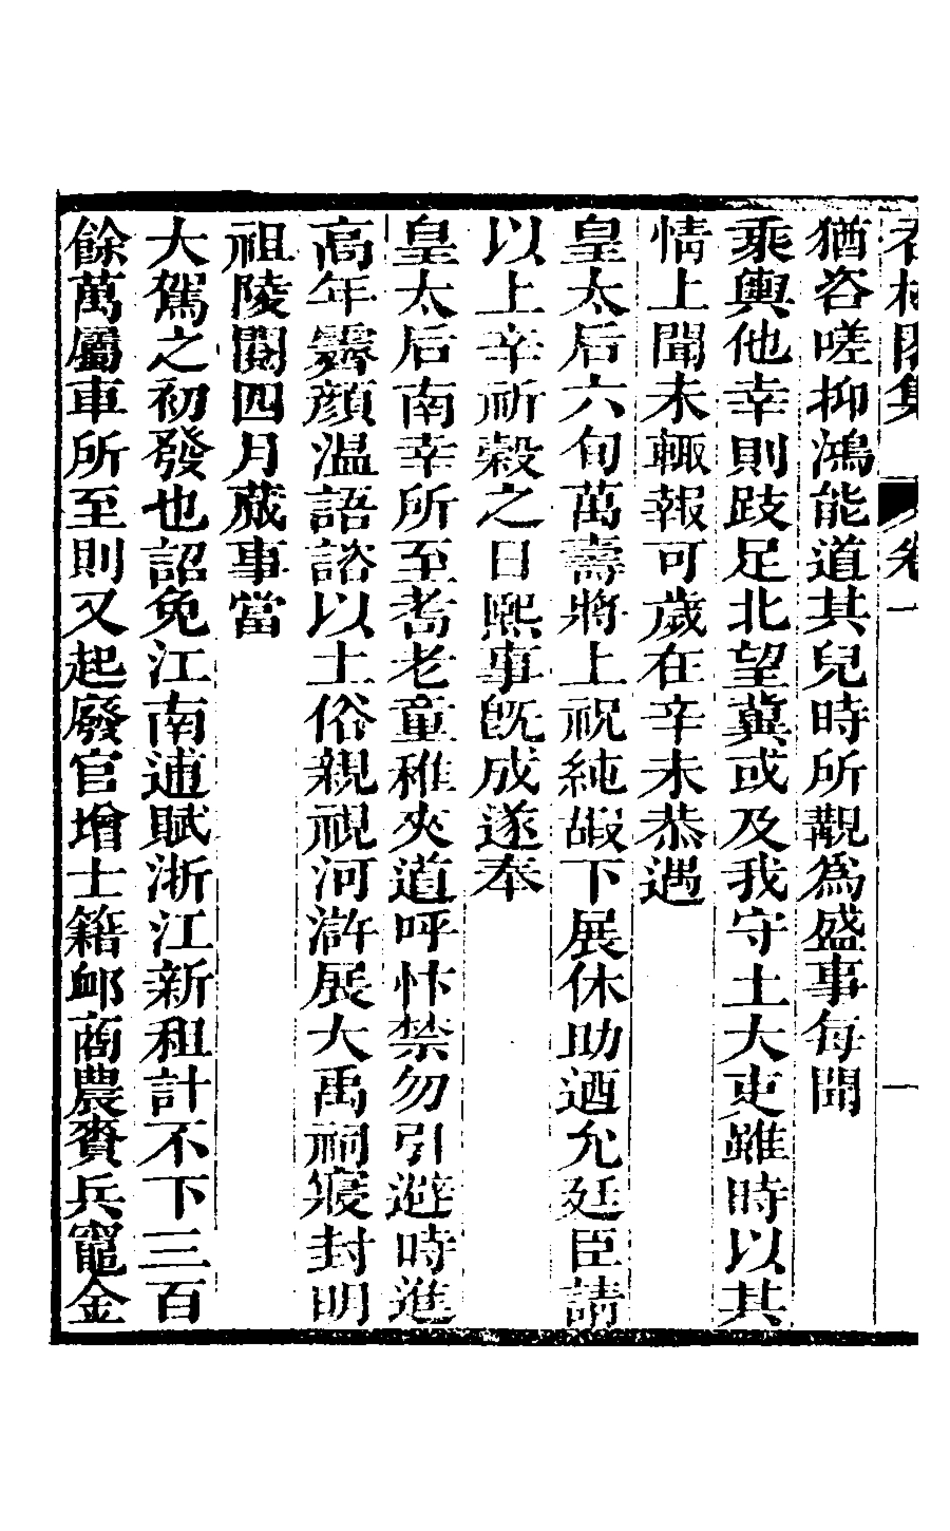 集 卷一 一
猶咨嗟抑鴻能道其兒時所覩為盛事每聞
乘輿他幸則跂足北望冀或及我守土大吏雖時以其
情上聞未輒報可歲在辛未恭遇
皇太后六旬萬壽將上祝純嘏下展休助迺允廷臣請
以上辛祈穀之日熙事旣成遂奉
皇太后南幸所至耇老童稚夾道呼忭禁勿引避時進
高年霽顏溫語諮以土俗親視河滸展大禹祠寢封明
祖陵閱四月蕆事當
大駕之初發也詔免江南逋賦浙江新租計不下三百
餘萬屬車所至則又起廢官增士籍卹商農賚兵竈金